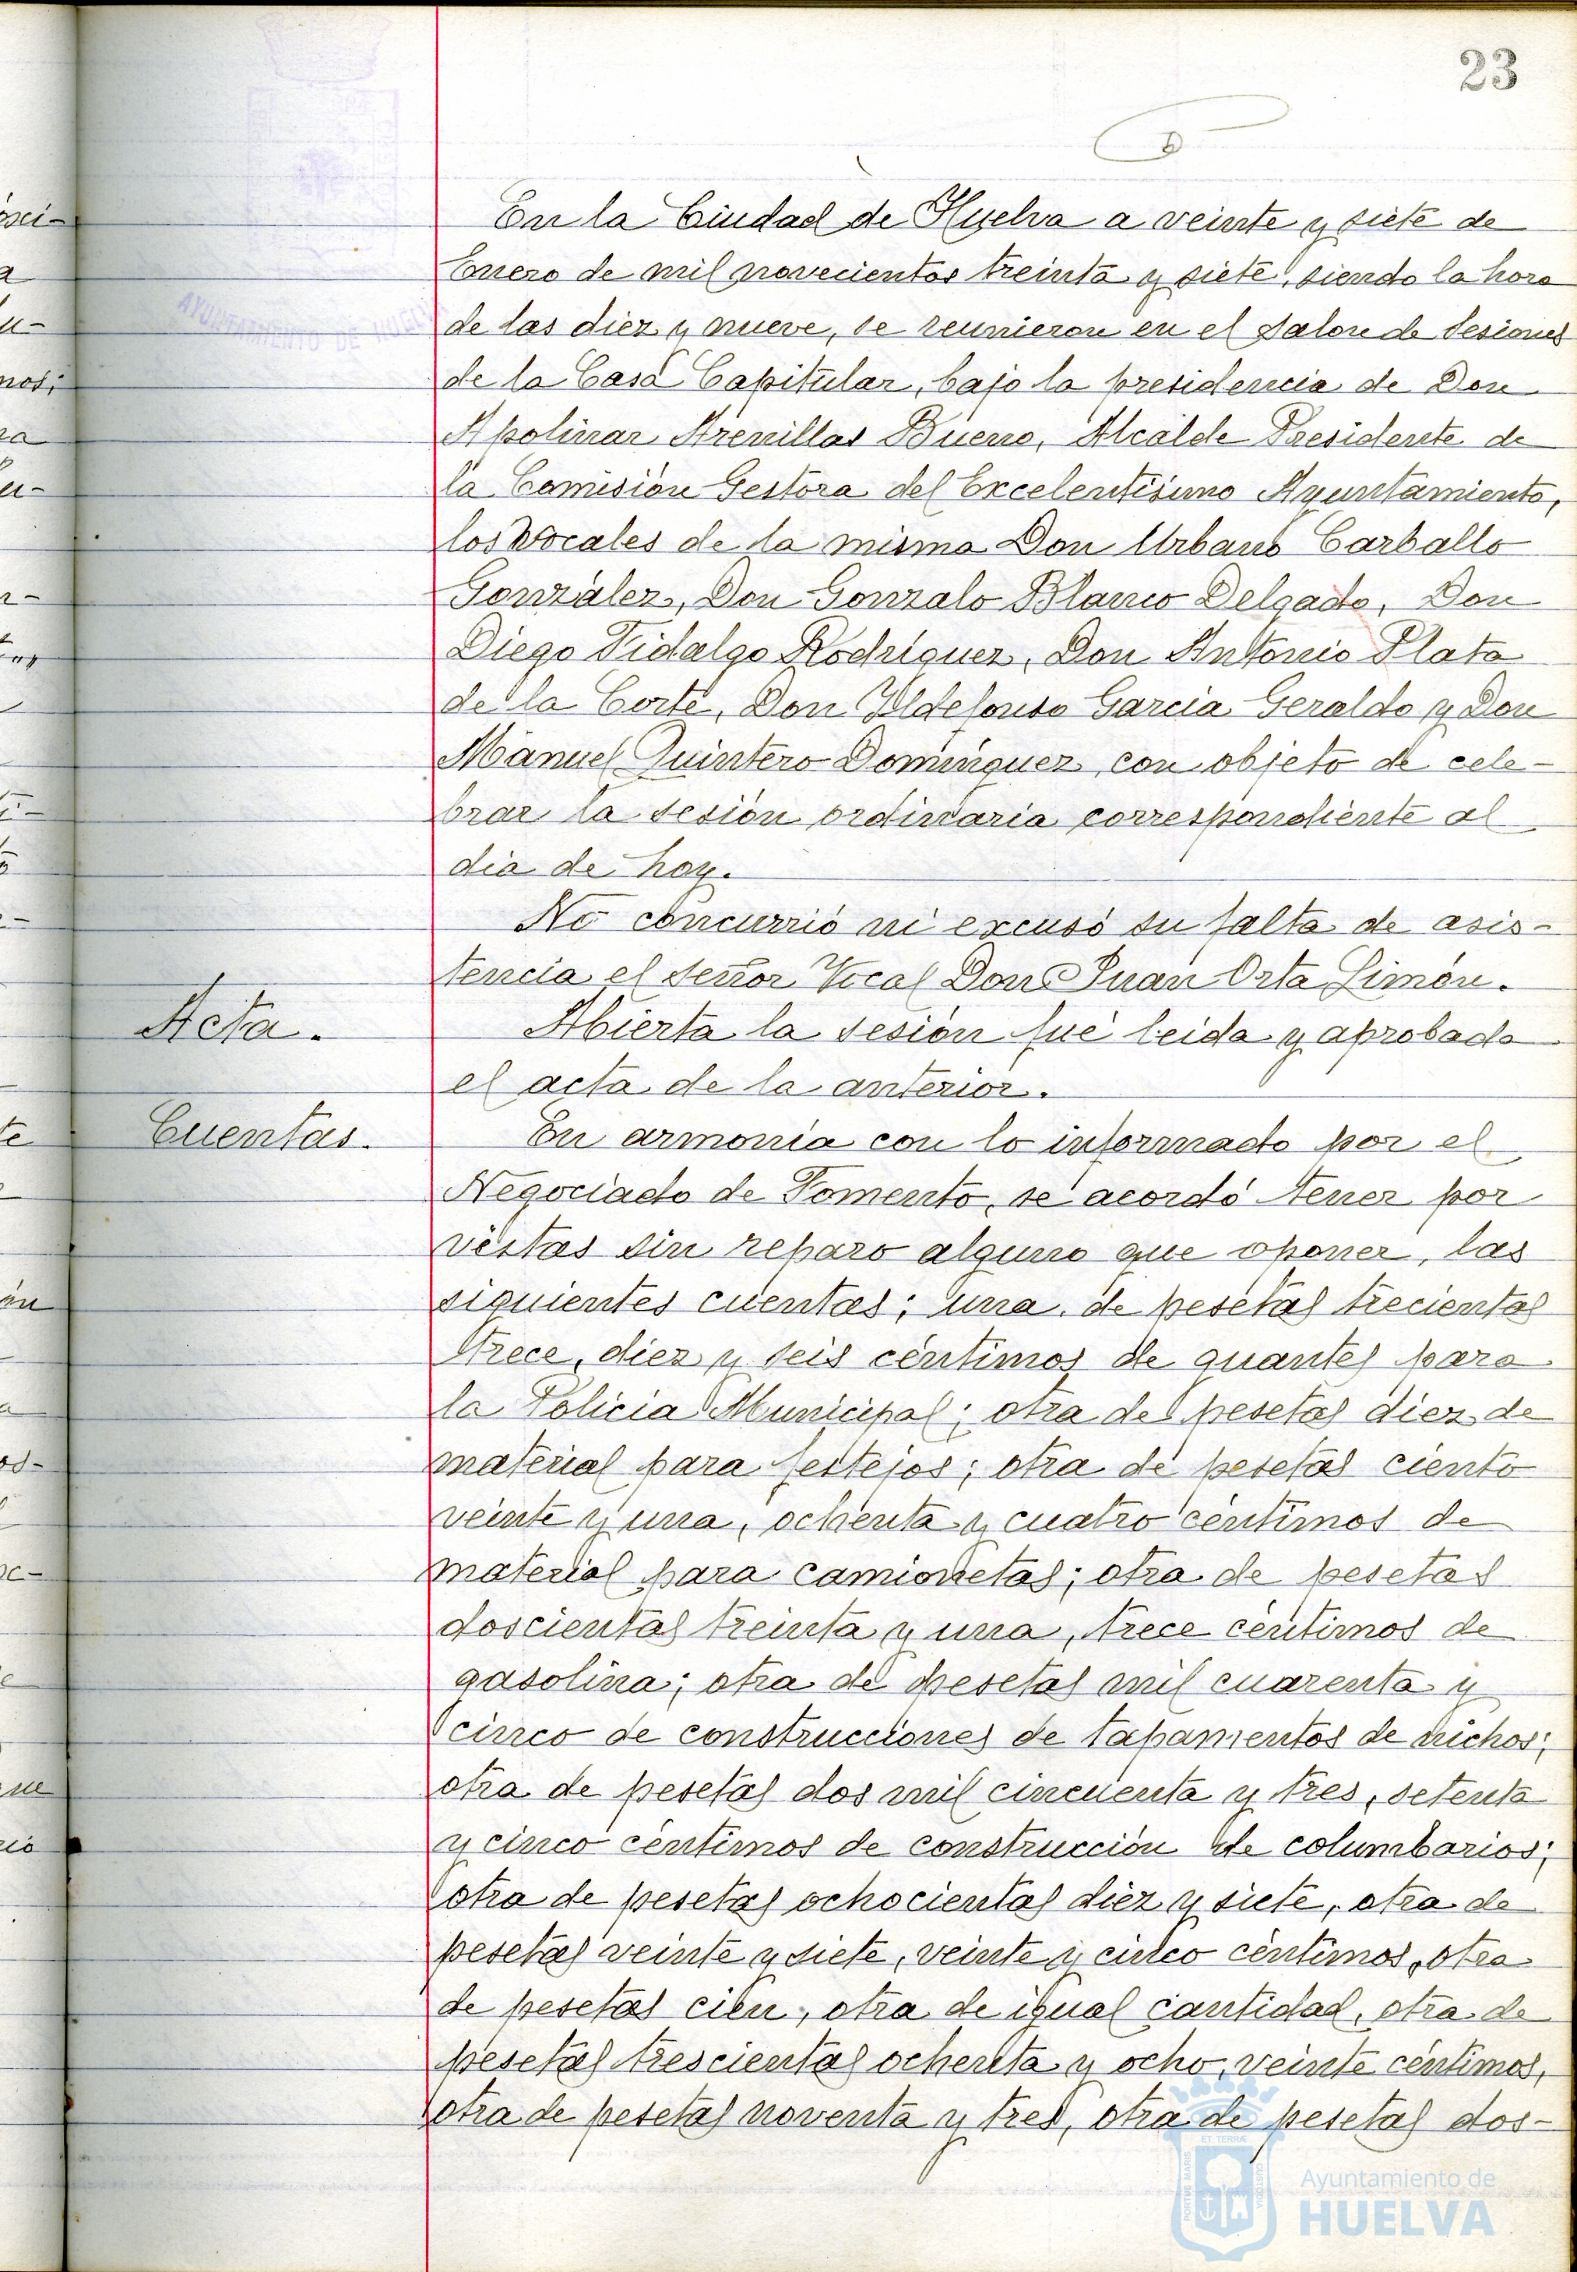 23
En la Ciudad de Huelva a veinte y siete de
Enero de mil novecientos treinta y siete, siendo la hora
de las diez y nueve, se reunieron en el Salon de Sesiones
de la Casa Capitular, bajo la presidencia de Don
Apolinar Arenillas Bueno, Alcalde Presidente de
la Comisión Gestora del Excelentísimo Ayuntamiento,
los Vocales de la misma Don Urbano Carballo
González, Don Gonzalo Blanco Delgado, Don
Diego Fidalgo Rodríguez, Don Antonio Plata
de la Corte, Don Ildefonso Garcia Geraldo y Don
Manuel Quintero Domínguez, con objeto de cele-
brar la sesión ordinaria correspondiente al
dia de hoy.
No concurrió ni excusó su falta de asis-
tencia el señor Vocal Don Juan Orta Limón.
Acta.
Abierta la sesión fué leida y aprobada
el acta de la anterior.
Cuentas.
En armonía con lo informado por el
Negociado de Fomento, se acordó tener por
vistas sin reparo alguno que oponer, las
siguientes cuentas; una de pesetas trecientas
trece, diez y seis céntimos de guantes para
la Policía Municipal; otra de pesetas diez de
material para festejos; otra de pesetas ciento
veinte y una, ochenta y cuatro céntimos de
material para camionetas; otra de pesetas
doscientas treinta y una, trece céntimos de
gasolina; otra de pesetas mil cuarenta y
cinco de construcciones de tapamentos de nichos;
otra de pesetas dos mil cincuenta y tres, setenta
y cinco céntimos de construcción de columbarios;
otra de pesetas ochocientas diez y siete, otra de
pesetas veinte y siete, veinte y cinco céntimos, otra
de pesetas cien, otra de igual cantidad, otra de
pesetas trescientas ochenta y ocho, veinte céntimos,
otra de pesetas noventa y tres, otra de pesetas dos-
AYUNTAMIENTO DE HUELV
Ayuntamiento de
HUELVA